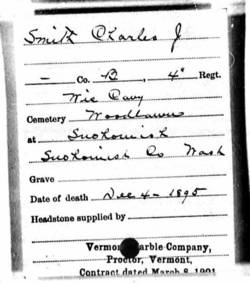 Smith Charles J
— Co. B, 4" Regt.
Wis Cavy
Cemetery Woodlawn
at Snohomish
Snohomish Co Wash
Grave
Date of death Dec 4 - 1895
Headstone supplied by
Vermont Marble Company,
Proctor, Vermont,
Contract dated March 8, 1901